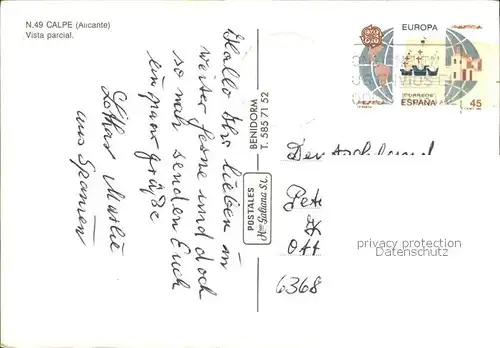 N.49 CALPE (Alicante)
Vista parcial.
Hallo Ihr lieben in
weiter ferne und doch
so nah senden Euch
ein paar grüße
Lothar
aus Spanien
POSTALES
Hnos Galiana S.L.
BENIDORM
T. 585 71 52
EUROPA
CORREOS
ESPAÑA
45
Deutschland
Pet
Ott
6368
privacy protection
Datenschutz